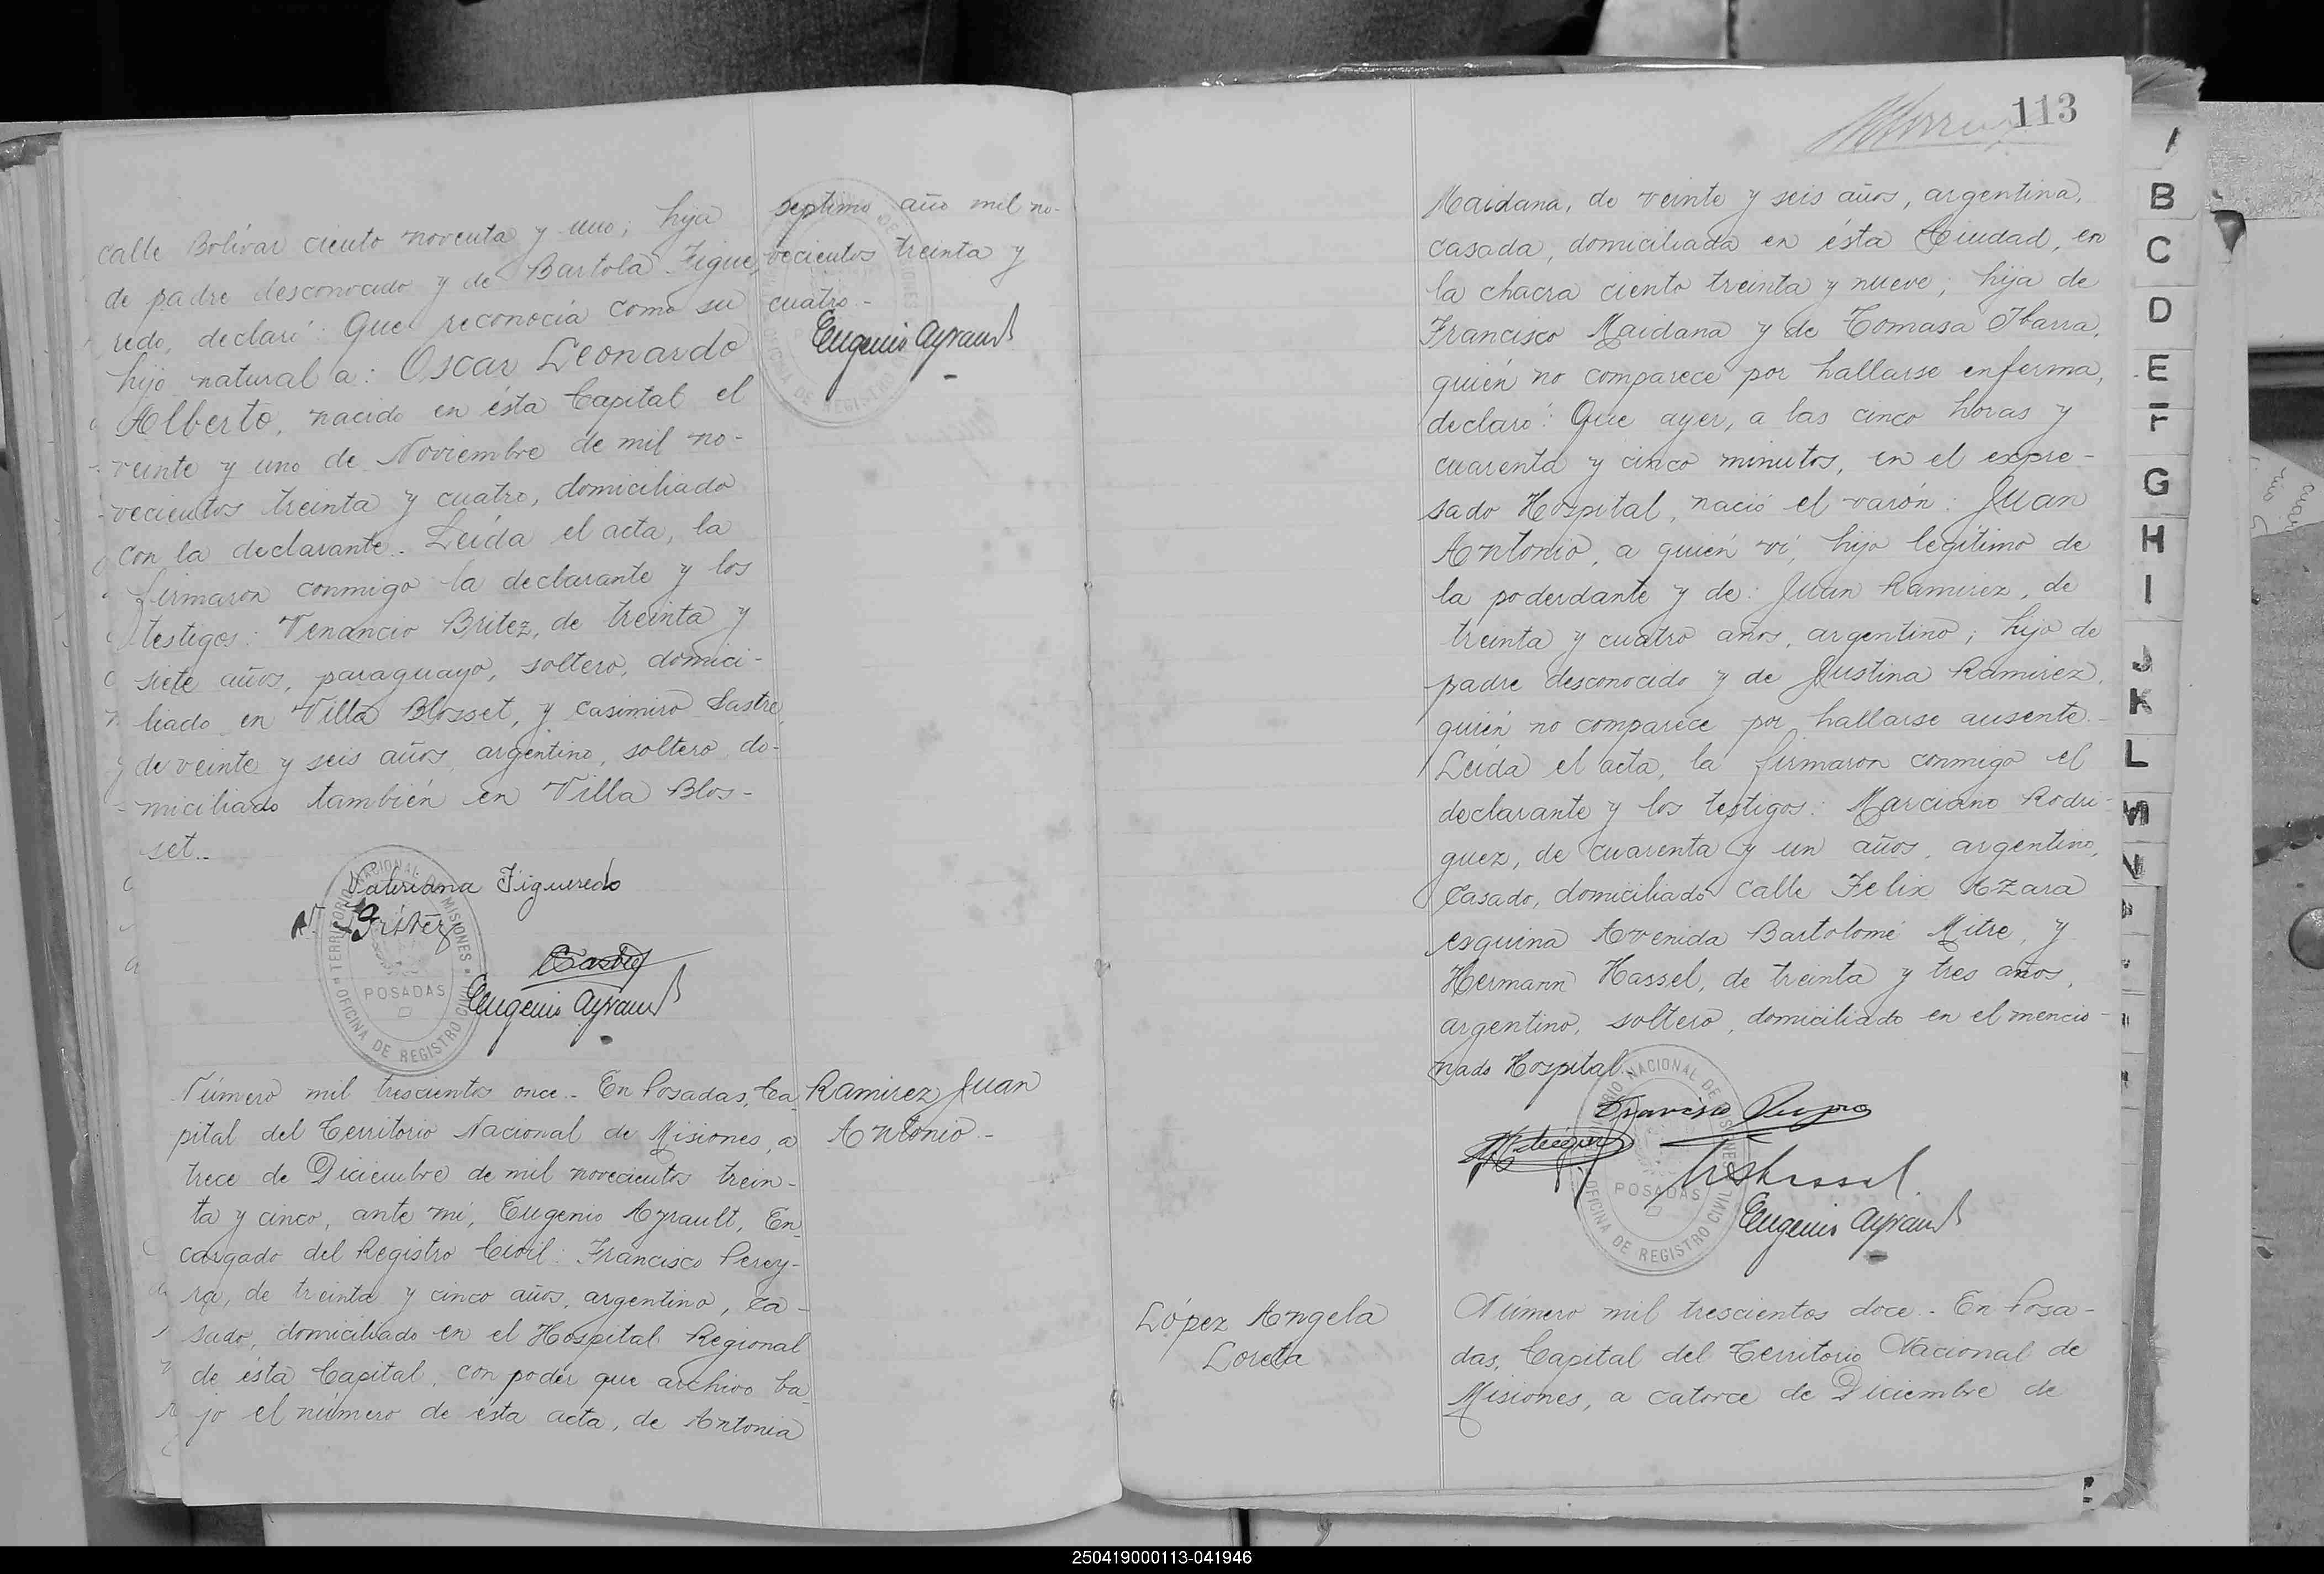 calle Bolívar ciento noventa y uno; hija
de padre desconocido y de Bartola Figue-
redo, declaró: Que reconocía como su
hijo natural a: Oscar Leonardo
Alberto, nacido en ésta Capital el
veinte y uno de Noviembre de mil no-
vecientos treinta y cuatro, domiciliado
con la declarante.. Leída el acta, la
firmaron conmigo la declarante y los
testigos: Venancio Britez, de treinta y
siete años, paraguayo, soltero, domici-
liado en Villa Blosset, y Casimiro Sastre,
de veinte y seis años, argentino, soltero, do-
miciliado también en Villa Blos-
set..
septimo año mil no-
vecientos treinta y
cuatro.-
Eugenio Ayrault
Valeriana Figueredo
V. Brítez
Eugenio Ayrault
TERRITORIO NACIONAL DE MISIONES
POSADAS
OFICINA DE REGISTRO CIVIL
Número mil trescientos once.- En Posadas, Ca-
pital del Territorio Nacional de Misiones, a
trece de Diciembre de mil novecientos trein-
ta y cinco, ante mí, Eugenio Ayrault, En-
cargado del Registro Civil: Francisco Perey-
ra, de treinta y cinco años, argentino, ca-
sado, domiciliado en el Hospital Regional
de ésta Capital, con poder que archivo ba-
jo el número de ésta acta, de Antonia
Ramirez Juan
Antonio.-
113
Maidana, de veinte y seis años, argentina,
casada, domiciliada en ésta Ciudad, en
la chacra ciento treinta y nueve; hija de
Francisco Maidana y de Tomasa Ibarra,
quién no comparece por hallarse enferma,
declaró: Que ayer, a las cinco horas y
cuarenta y cinco minutos, en el expre-
sado Hospital, nació el varón: Juan
Antonio, a quién ví, hijo legítimo de
la poderdante y de: Juan Ramirez, de
treinta y cuatro años, argentino; hijo de
padre desconocido y de Justina Ramirez,
quién no comparece por hallarse ausente.-
Leída el acta, la firmaron conmigo el
declarante y los testigos: Marciano Rodri-
guez, de cuarenta y un años, argentino,
casado, domiciliado calle Felix Azara
esquina Avenida Bartolomé Mitre, y
Hermann Hassel, de treinta y tres años,
argentino, soltero, domiciliado en el mencio-
nado Hospital.
Eugenio Ayrault
POSADAS
OFICINA DE REGISTRO CIVIL
López Angela
Loreta
Número mil trescientos doce.- En Posa-
das, Capital del Territorio Nacional de
Misiones, a catorce de Diciembre de
B
C
D
E
F
G
H
I
J
K
L
M
N
250419000113-041946